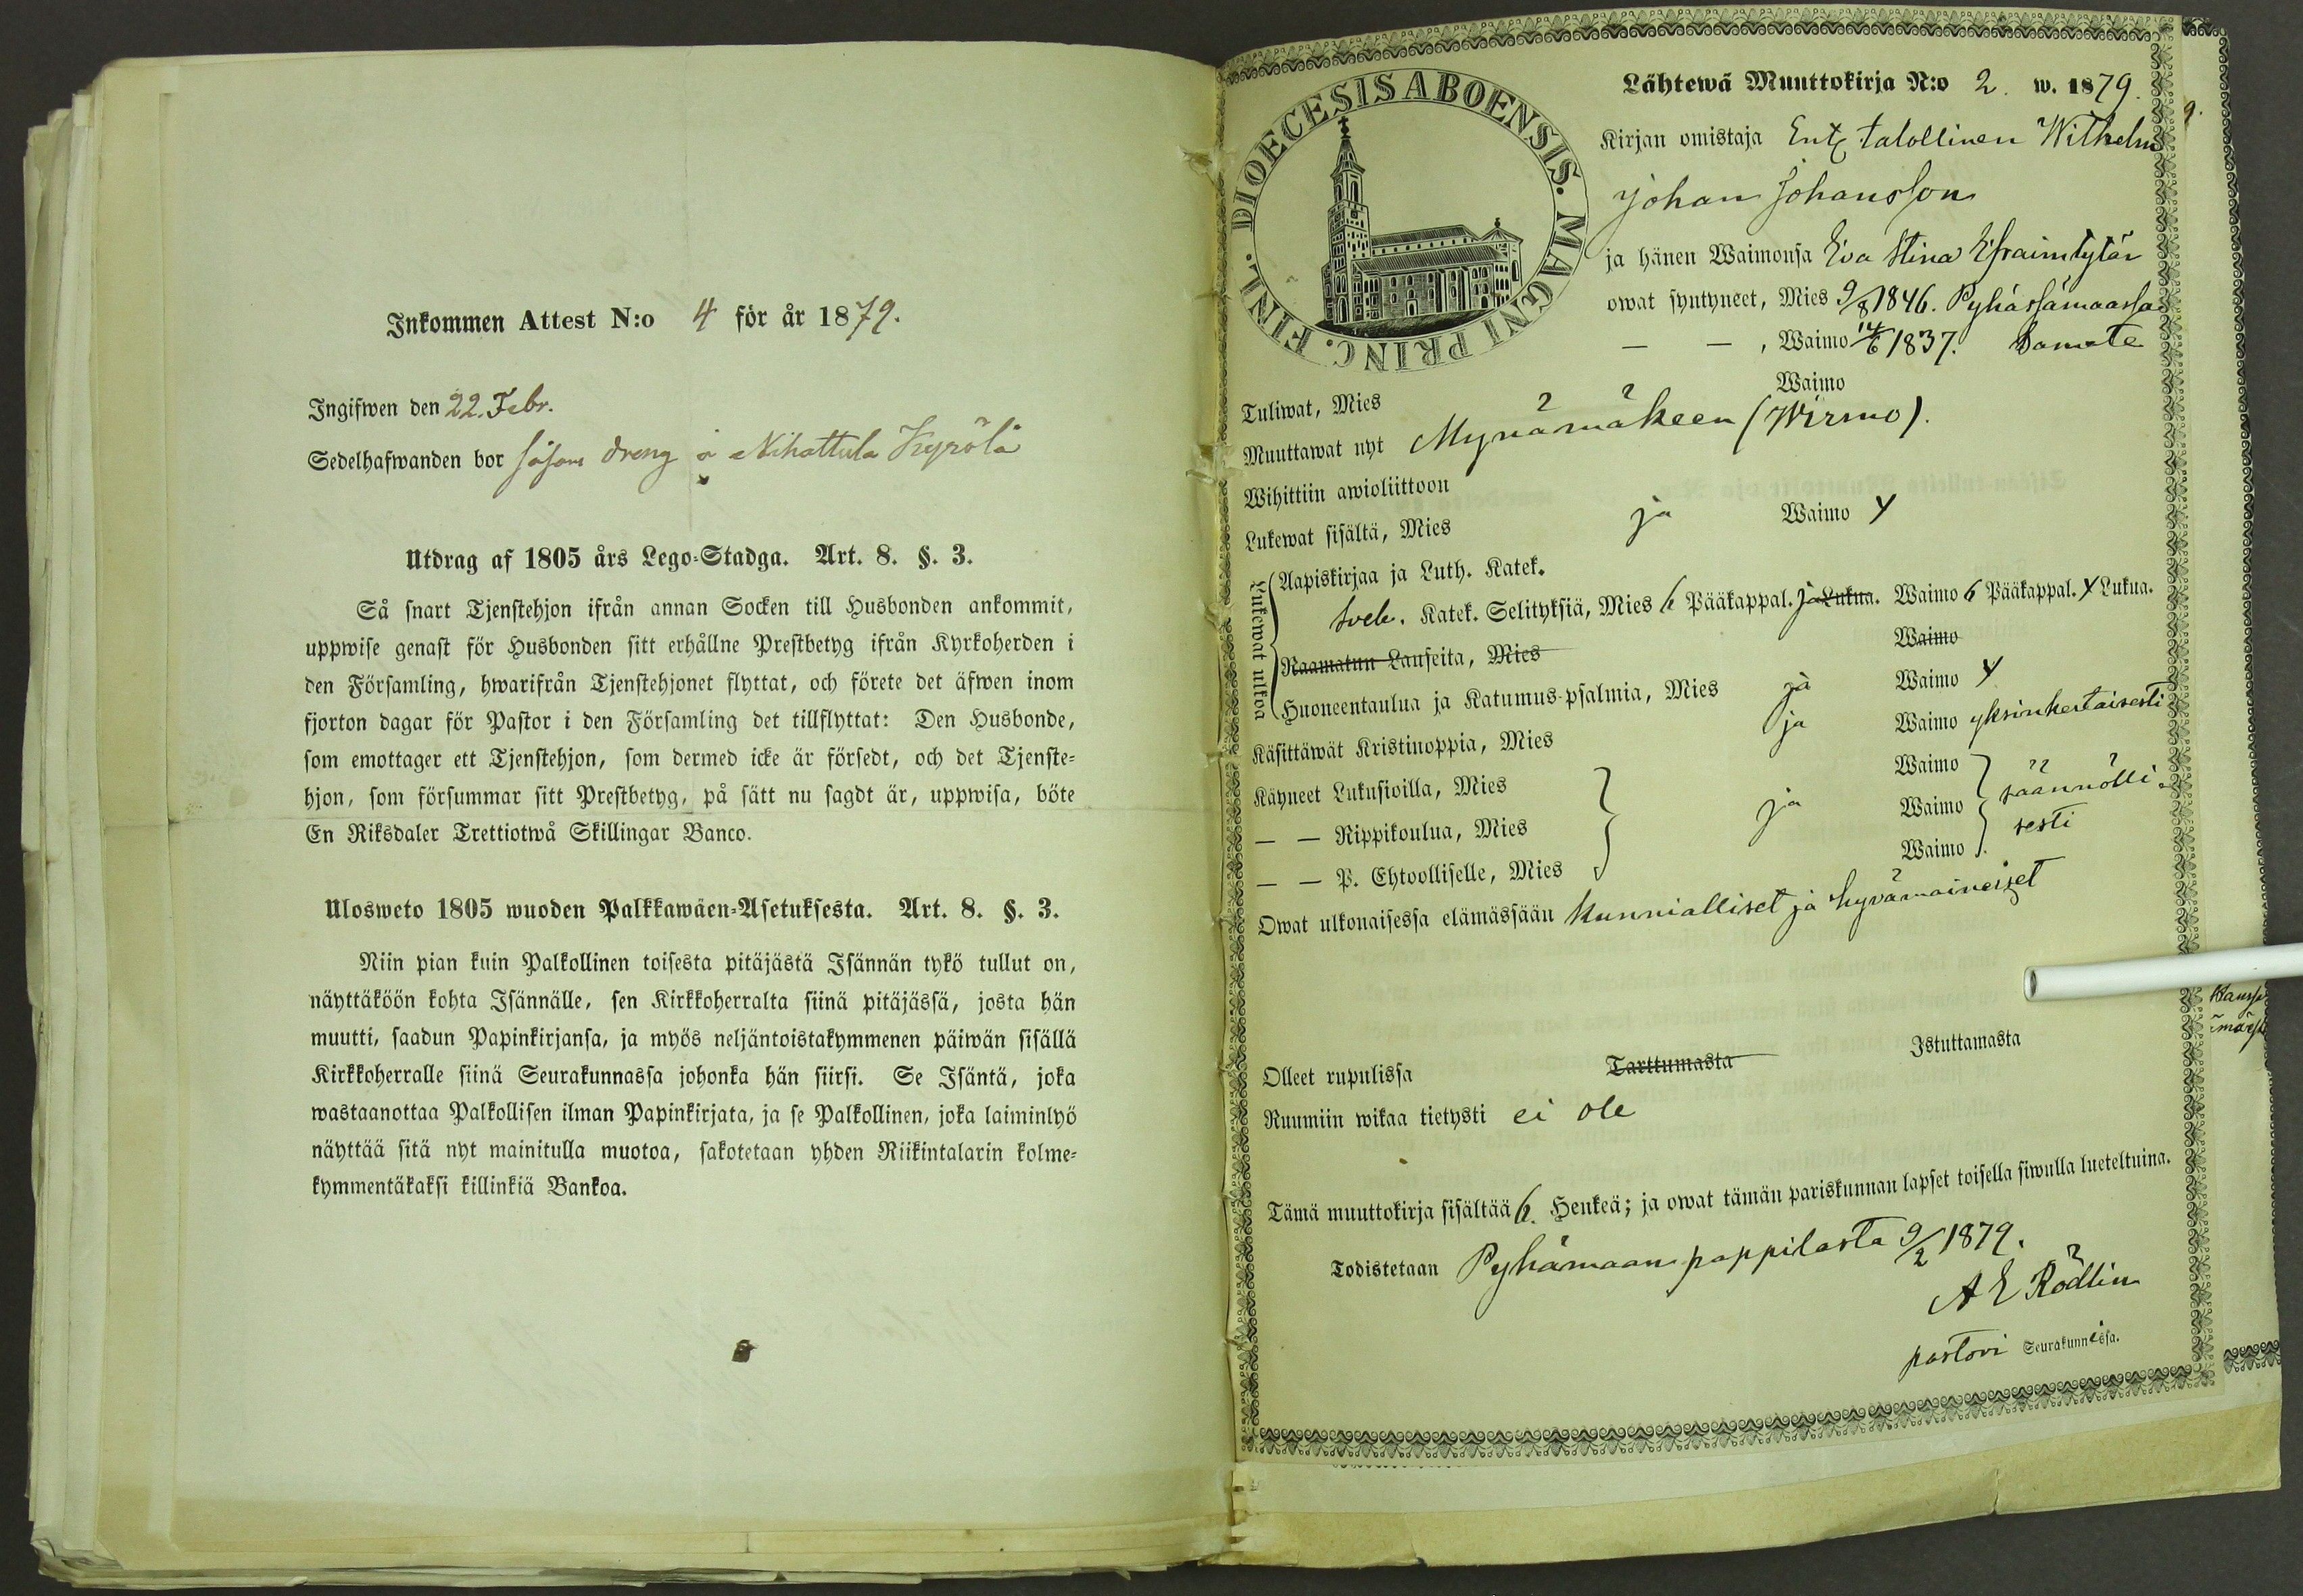 Inkommen Attest N:o 4 för år 1879.
Ingifwen den 22. Febr.
Sedelhafwanden bor såsom dreng å Nihattula Kyrölä
Utdrag af 1805 års Lego-Stadga. Art. 8. §. 3.
Så snart Tjenstehjon ifrån annan Socken till Husbonden ankommit,
uppwise genast för Husbonden sitt erhållne Prestbetyg ifrån Kyrkoherden i
den Församling, hwarifrån Tjenstehjonet flyttat, och förete det äfwen inom
fjorton dagar för Pastor i den Församling det tillflyttat: Den Husbonde,
som emottager ett Tjenstehjon, som dermed icke är försedt, och det Tjenste-
hjon, som försummar sitt Prestbetyg, på sätt nu sagdt är, uppwisa, böte
En Riksdaler Trettiotwå Skillingar Banco.
Ulosweto 1805 wuoden Palkkawäen-Asetuksesta. Art. 8. §. 3.
Niin pian kuin Palkollinen toisesta pitäjästä Isännän tykö tullut on,
näyttäköön kohta Isännälle, sen Kirkkoherralta siinä pitäjässä, josta hän
muutti, saadun Papinkirjansa, ja myös neljäntoistakymmenen päiwän sisällä
Kirkkoherralle siinä Seurakunnassa johonka hän siirsi. Se Isäntä, joka
wastaanottaa Palkollisen ilman Papinkirjata, ja se Palkollinen, joka laiminlyö
näyttää sitä nyt mainitulla muotoa, sakotetaan yhden Riikintalarin kolme-
kymmentäkaksi killinkiä Bankoa.
DIOECESIS ABOENSIS. MAGNI PRINC. FINL.
Lähtewä Muuttokirja N:o 2. w. 1879.
Kirjan omistaja Ent. talollinen Wilhelm
Johan Johansson
ja hänen Waimonsa Eva Stina Efraimtytär
owat syntyneet, Mies 9/8 1846. Pyhässämaassa
— — , Waimo 14/6 1837. Samate
Tuliwat, Mies Waimo
Muuttawat nyt Mynämäkeen (Wirmo).
Wihittiin awioliittoon
Lukewat sisältä, Mies ja Waimo y
Lukewat ulkoa
Aapiskirjaa ja Luth. Katek.
Sveb. Katek. Selityksiä, Mies 6 Pääkappal. ja Lukua. Waimo 6 Pääkappal. y Lukua.
Raamatun Lauseita, Mies Waimo
Huoneentaulua ja Katumus-psalmia, Mies ja Waimo y
Käsittäwät Kristinoppia, Mies ja Waimo yksinkertaisesti
Käyneet Lukusioilla, Mies Waimo
— — Rippikoulua, Mies ja Waimo säännölli-
— — P. Ehtoolliselle, Mies Waimo sesti
Owat ulkonaisessa elämässään kunnialliset ja hyvämaineiset
Olleet rupulissa Tarttumasta Istuttamasta
Ruumiin wikaa tietysti ei ole
Tämä muuttokirja sisältää 6. Henkeä; ja owat tämän pariskunnan lapset toisella siwulla lueteltuina.
Todistetaan Pyhämaan pappilasta 9/2 1879.
A E Rödlin
pastori Seurakunnissa.